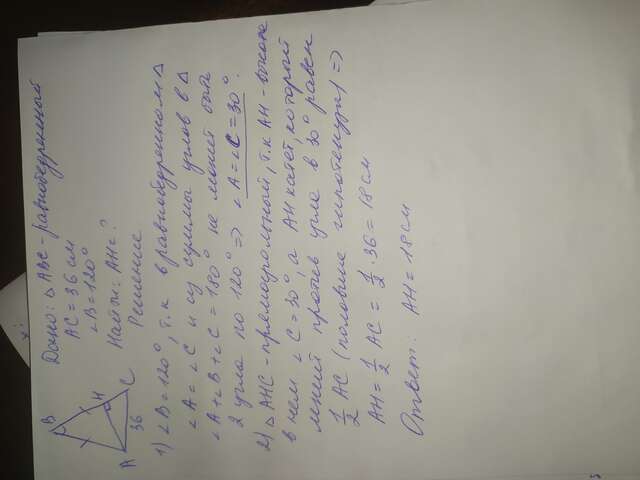 B
H
A
36
C
Дано: △ABC - равнобедренный
AC = 36 см
∠B = 120°
Найти: AH = ?
Решение
1) ∠B = 120°, т.к в равнобедренном △
∠A = ∠C и из суммы углов в △
∠A + ∠B + ∠C = 180° не может быть
2 угла по 120° => ∠A = ∠C = 30°.
2) △AHC - прямоугольный, т.к AH -
в нем ∠C = 30°, а AH катет, который
лежит против угла в 30° равен
1/2 AC (половине гипотенузы) =>
AH = 1/2 AC = 1/2 · 36 = 18 см
Ответ: AH = 18 см